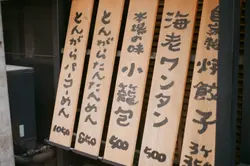 自家製焼餃子
3ヶ
海老ワンタン
500
本場の味
小籠包
500
とんがらたんたんめん
850
とんがらパーコーめん
1050